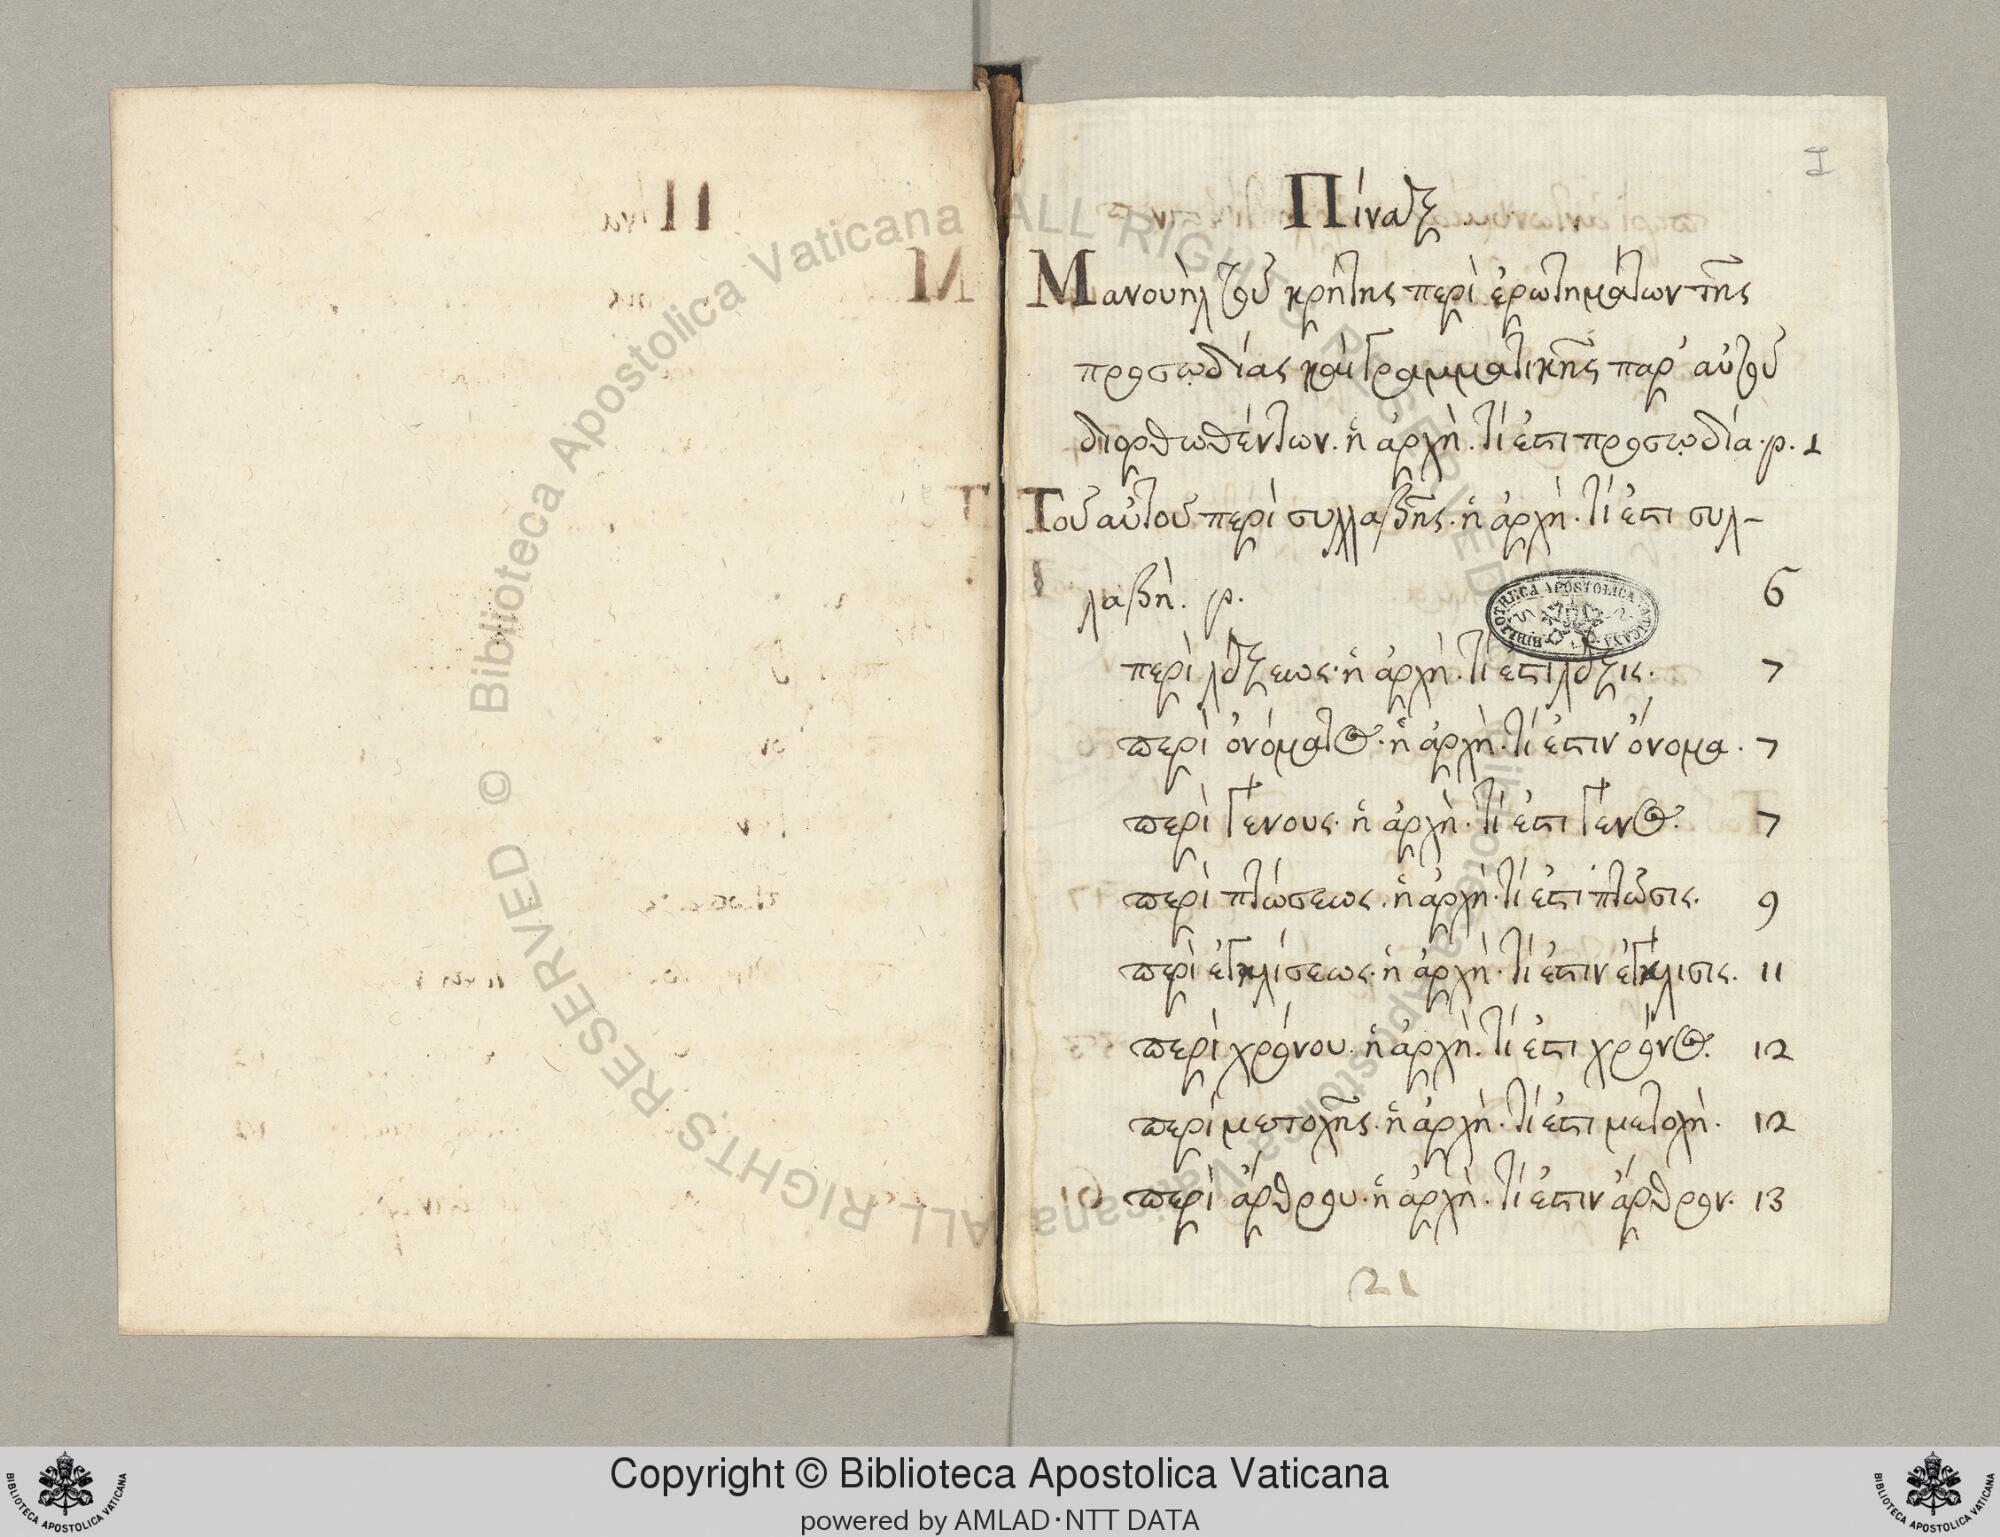 I
Πίναξ
Μανουὴλ τοῦ κρήτης περὶ ἐρωτημάτων τῆς
προσῳδίας καὶ γραμματικῆς παρ' αὐτοῦ
διορθωθέντων. ἡ ἀρχὴ. τί ἐστι προσῳδία. p. 1
Τοῦ αὐτοῦ περὶ συλλαβῆς. ἡ ἀρχὴ. τί ἐστι συλ-
λαβὴ. p. 6
περὶ λέξεως. ἡ ἀρχὴ. τί ἐστι λέξις. 7
περὶ ὀνόματος. ἡ ἀρχὴ. τί ἐστιν ὄνομα. 7
περὶ γένους. ἡ ἀρχὴ. τί ἐστι γένος. 7
περὶ πτώσεως. ἡ ἀρχὴ. τί ἐστι πτῶσις. 9
περὶ ἐγκλίσεως. ἡ ἀρχὴ. τί ἐστιν ἔγκλισις. 11
περὶ χρόνου. ἡ ἀρχὴ. τί ἐστι χρόνος. 12
περὶ μετοχῆς. ἡ ἀρχὴ. τί ἐστι μετοχὴ. 12
περὶ ἄρθρου. ἡ ἀρχὴ. τί ἐστιν ἄρθρον. 13
21
BIBLIOTHECA APOSTOLICA VATICANA
© Biblioteca Apostolica Vaticana ALL RIGHTS RESERVED
© Biblioteca Apostolica Vaticana ALL RIGHTS RESERVED
Copyright © Biblioteca Apostolica Vaticana
powered by AMLAD·NTT DATA
BIBLIOTECA APOSTOLICA VATICANA
BIBLIOTECA APOSTOLICA VATICANA